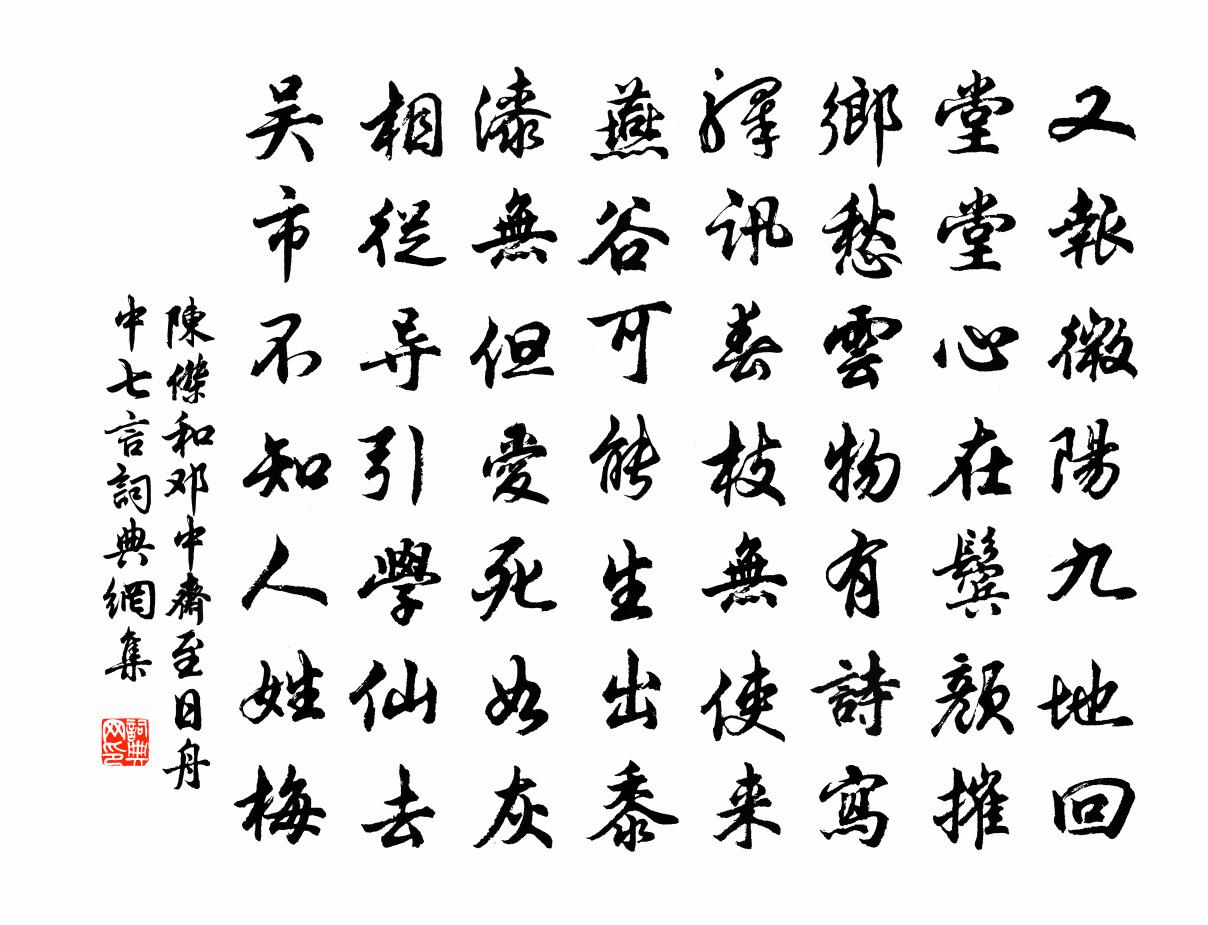 又報微陽九地回
堂堂心在鬢顏摧
鄉愁雲物有詩寫
驛訊春枝無使来
燕谷可能生出黍
漆無但愛死如灰
相從导引學仙去
吴市不知人姓梅
陳傑和邓中齋至日舟
中七言詞典網集
詞典
网印